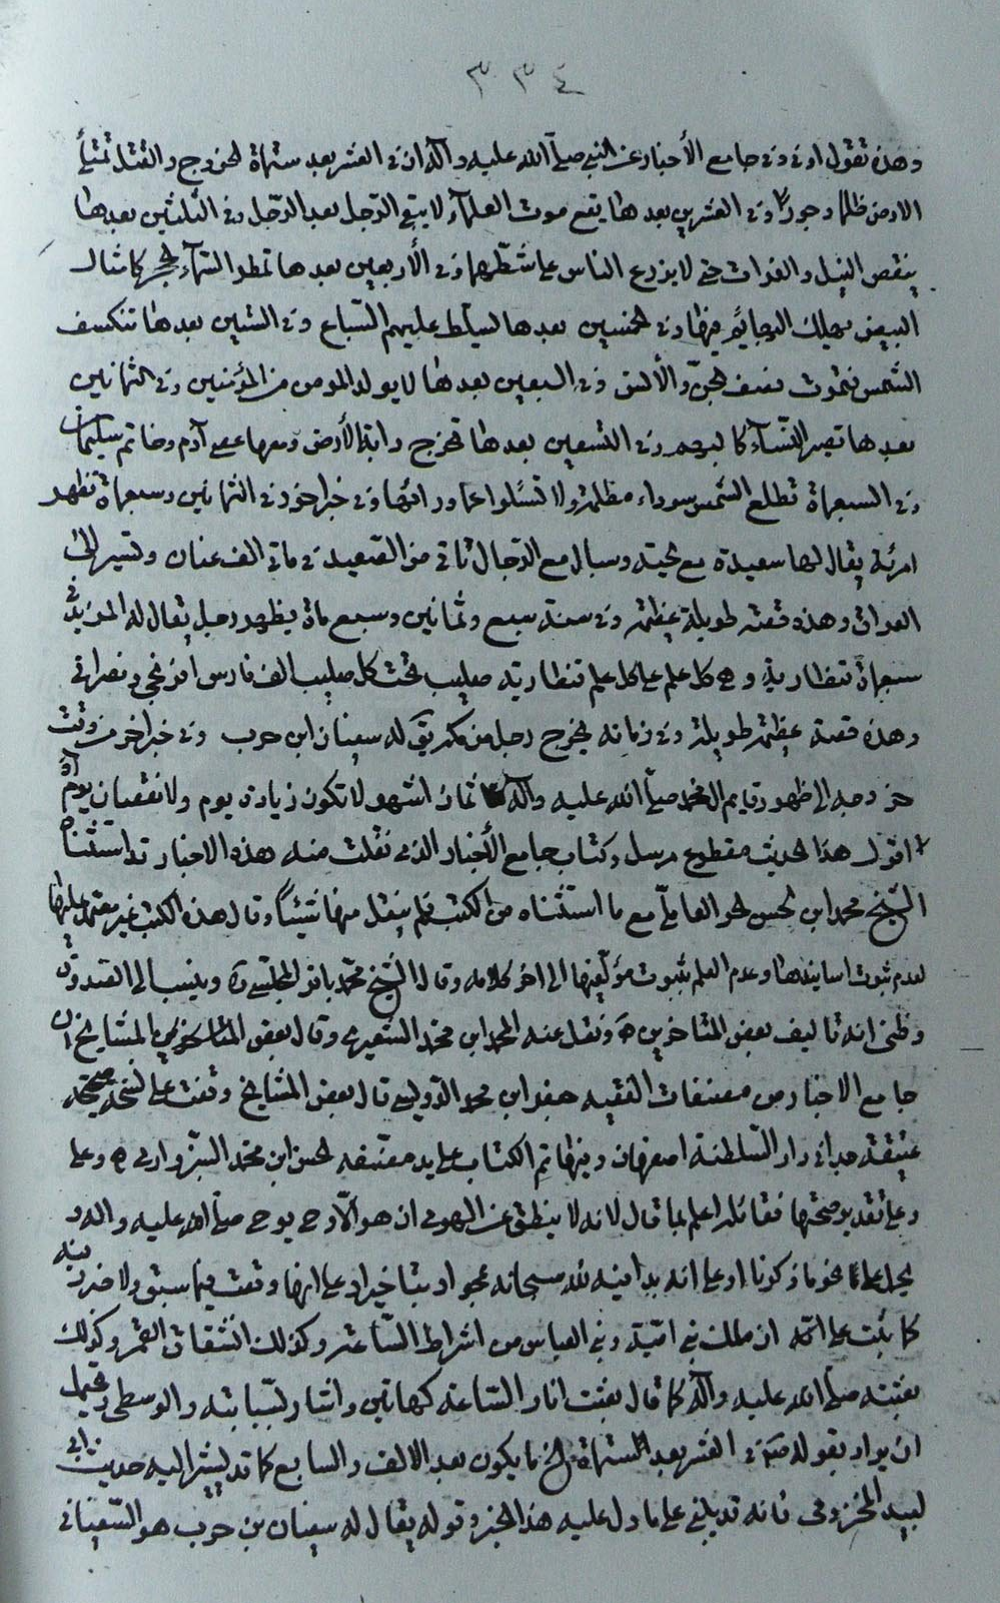 ٣٣٤
وهذه تقول اوفى وفى جامع الأخبار وعن النبي صلى الله عليه وآله ان فى العشر بعد ستمأة الخروج والقتل تمتلأ
الارض ظلما وجورا وفى العشرين بعدها يقع موت العلمآء لا يبقى الرّجل بعد الرّجل وفى الثلثين بعدها
ينقص النيل والفرات حتى لا يزرع الناس على شطّهما وفى الأربعين بعدها تمطر السّمآء الحجر كامثال
البيض يهلك البهايم فيها وفى الخمسين بعدها تسلّط عليهم السّباع وفى الستين بعدها تنكسف
الشّمس فيموت نصف الجنّ والأنس وفى السبعين بعدها لا يولد المومن من المؤمنين وفى الثمانين
بعدها تصير النّسآء كالبهيم وفى التسعين بعدها تخرج دابة الأرض ومعها عصى آدم وخاتم سليمان
وفى السبعمأة تطلع الشّمس سوداء مظلمة ولا تسئلوا عما ورائها وفى خبر اخر وفى الثمانين وسبعمأة تظهر
امرئة يقال لها سعيدة مع لحية وسبال مع الدّجال تاتى من الصّعيد فى ماتى الف عنان وتسير الى
العراق وهذه قصّة طويلة عظيمة وفى سنة سبع وثمانين وسبع ماة يظهر رجل يقال له المزيد فى
سبعمأة قنطارية وهى كل علم على كل علم قنطارية صليب تحت كل صليب الف فارس افرنجى ونصرانى
وهذه قصة عظيمة طويلة وفى زمانه يخرج رجل من مكة يقال له سفيان ابن حرب وفى خبر اخر من وقت
خروجه الى ظهور قايم ال محمد صلى الله عليه وآله ثمان اشهر لا تكون زيادة يوم ولا نقصان يوم اه
اقول هذا الحديث مقطوع مرسل وكتاب جامع الأخبار الذى نقلت منه هذه الاخبار قد استثناه
الشّيخ محمد ابن الحسن الحر العاملى مع ما استثناه من الكتب فلم ينقل منها شيئاً وقال هذه الكتب غير معتمد عليها
لعدم ثبوت اسانيدها وعدم العلم بثبوت مؤلفيها الى اخر كلامه وقال الشّيخ محمّد باقر المجلسى ره وينسب الى الصدوق
وظنى انه تاليف بعض المتاخرين ونقل عنه محمد ابن محمد الشعيرى وقال بعض المتاخرين المشايخ ان
جامع الاخبار من مصنفات الفقيه جعفر ابن محمد الدّوريستى قال بعض المشايخ وقفت على نسخة صحيحة
عتيقة جدا فى دار السّلطنة اصفهان وفيها تم الكتاب على يد مصنّفه الحسن ابن محمد السّبزوارى وعلى
وعلى تقدير صحتها فقائلها اعلم بما قال لانه لا ينطق عن الهوى ان هو الّا وحى يوحى صلى الله عليه واله و
يحمل على نحو ما ذكرنا او على انه بدا فيه لله سبحانه بمحو او بتاخير او على انها وقعت فيما سبق ولا ضرر فيه
كما ثبت على انه ان ملك بنى اميّة وبنى العباس من اشراط السّاعة وكذلك انشقاق القمر وكذلك
بعثته صلى الله عليه وآله كما قال بعثت انا والسّاعة كهاتين واشار بالسّبابة والوسطى وقيل
ان يراد بقوله فى العشر بعد الستمأة الخ ما يكون بعد الالف والسابع كما قد يشير اليه حديث ابى
لبيد المخزومى فانه قد يلتى على ما دل عليه هذا الخبر وقوله يقال له سفيان بن حرب هو السّفيانى